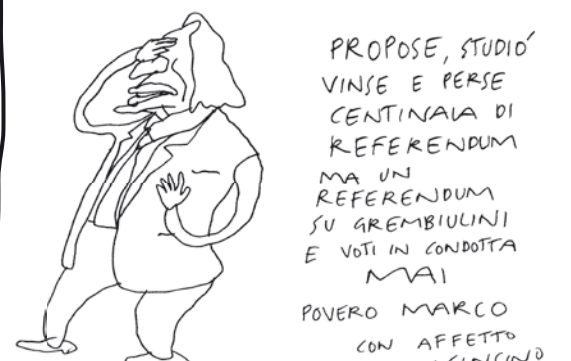 PROPOSE, STUDIÓ
VINSE E PERSE
CENTINAIA DI
REFERENDUM
MA UN
REFERENDUM
SU GREMBIULINI
E VOTI IN CONDOTTA
MAI
POVERO MARCO
CON AFFETTO